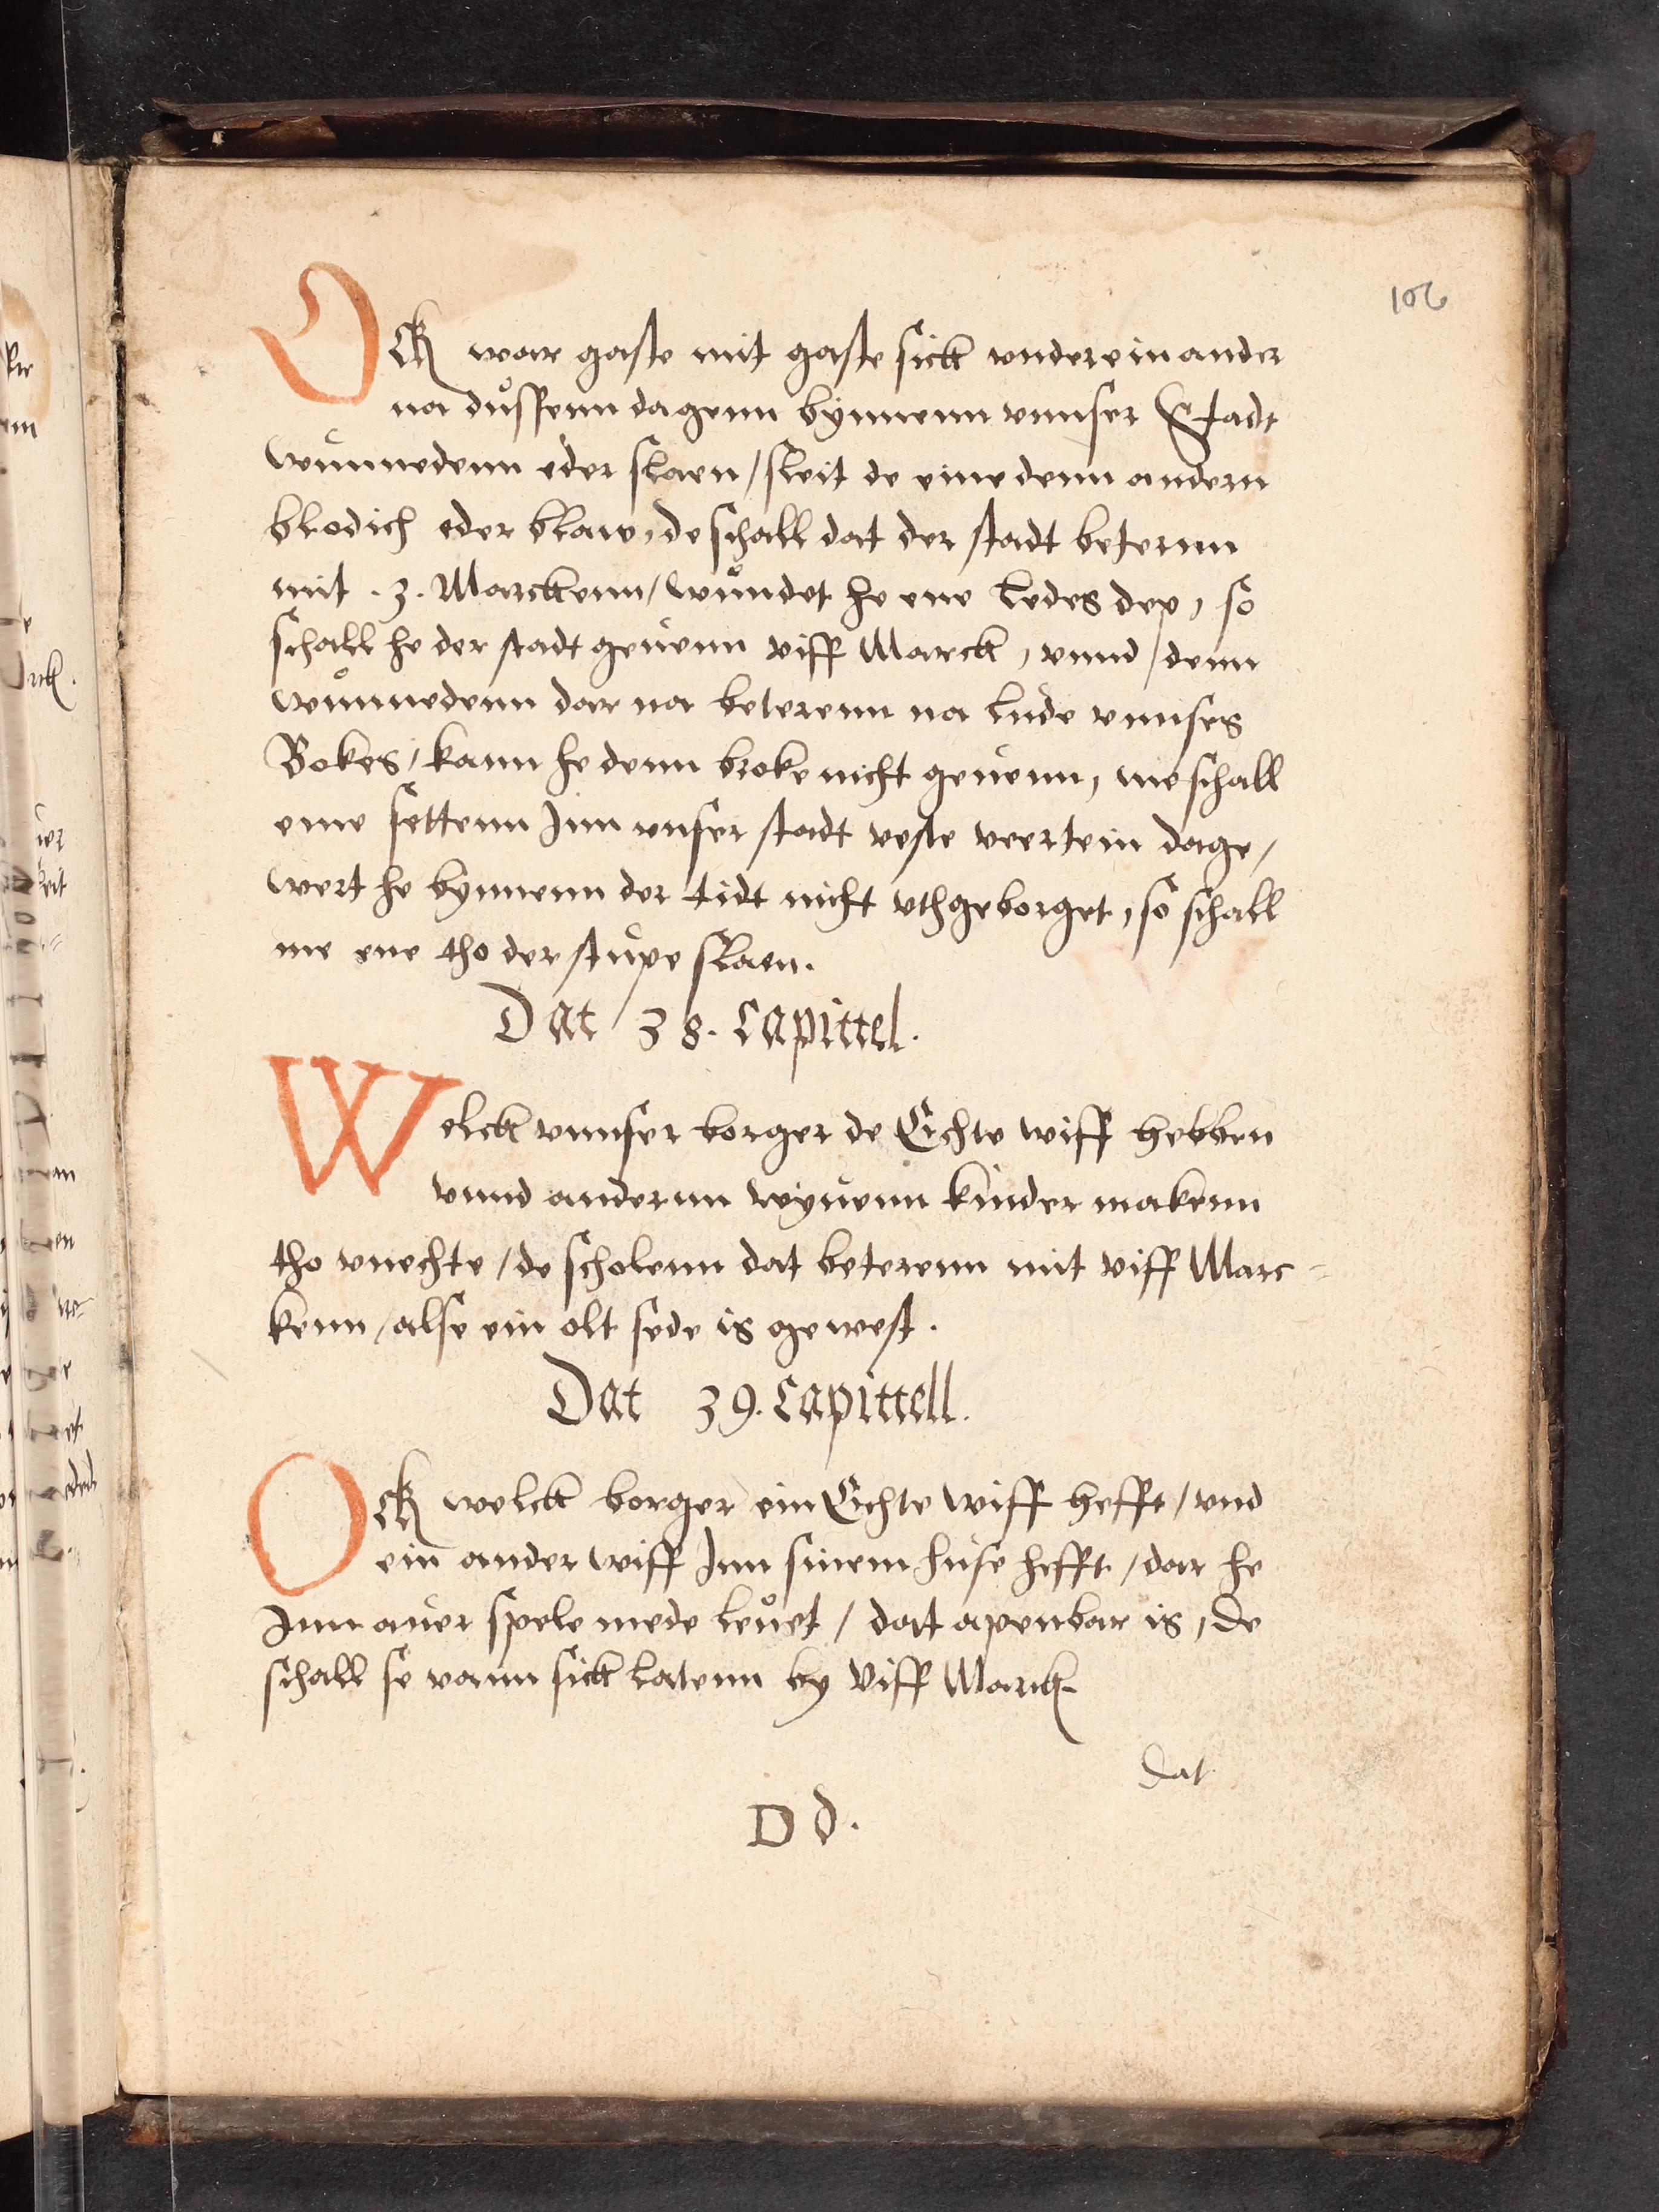 106
Ock war gaste mit gaste sick vndereinander
na dussenn dagenn bynnenn vnnser Stadt
wunnedenn eder slaen / sleit de eine denn andern
blodich eder blaw, de schall dat der stadt beternn
mit .3. Marckenn / wundet he ene ledes dep, so
schall he der stadt geuenn viff Marck, vnnd denn
wunnedenn dar na beterenn na lude vnnses
Bokes / kann he denn broke nicht geuenn, me schall
ene settenn Inn vnser stadt veste veertein dage /
wert he bynnenn der tidt nicht vthgeborget, so schall
me ene tho der stupe slaen.
Dat 38. Capittel.
Welck vnnser borger de Echte wiff hebben
vnnd andernn wyuenn kinder makenn
tho vnechte / de scholenn dat beterenn mit viff Marc-
kenn / alse ein olt sede is gewest.
Dat 39. Capittell.
Ock welck borger ein Echte wiff hefft / vnd
ein ander wiff Inn sinem huse hefft / dar he
Inn auer spele mede leuet / dat apenbar is, de
schall se vann sick latenn by Viff Marck
Dat
D d.